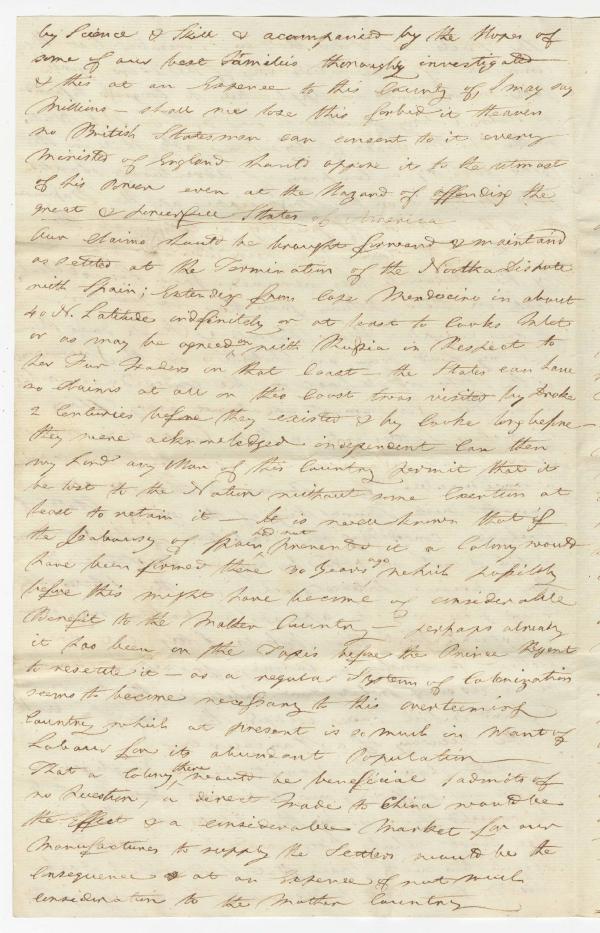 by Science & Skill & accompanied by the Hopes of
some of our best Families thoroughly investigated
& this at an Expense to this County of I may say
Millions – shall we lose this forbid it Heaven
no British Statesman can consent to it every
Minister of England should oppose it to the utmost
of his Power even at the Hazard of offending the
great & powerfull States of America
Our Claims should be brought forward & maintaind
as settled at the Termination of the Nootka Dispute
with Spain; Extending from Cape Mendocino in about
40 N. Latitude indefinitely or at least to Cooks Inlet
or as may be agreed on with Russia in Respect to
her Fur Traders on that Coast – the States can have
no Claims at all on this Coast twas visited by Drake
2 Centuries before they existed & by Cooke long before
they were acknowledged independent Can then
my Lord any Man of this Country permit that it
be lost to the Nation without some Exertion at
least to retain it – It is well known that if
the Jealousy of Spain had not prevented it a Colony would
have been formed there 20 Years ago which possibly
before this might have become of considerable
Benefit to the Mother Country – perhaps already
it has been on the Tapis before the Prince Regent
to resettle it – as a regular System of Colonization
seems to become necessary to this overteeming
Country which at present is so much in Want of
Labour for its abundant Population
That a Colony there would be beneficial admits of
no Question, a direct Trade to China would be
the Effect & a considerable Market for our
Manufactures to supply the Settlers would be the
Consequence & at an Expence of not much
consideration to the Mother Country